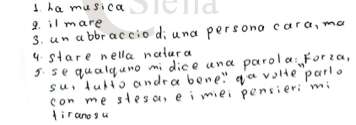 Siena
1. La musica
2. il mare
3. un abbraccio di una persona cara, ma
4. stare nella natura
5. se qualquno mi dice una parola: "Forza,
su, tutto andra bene." qa volte parlo
con me stesa, e i miei pensieri mi
tiranosu